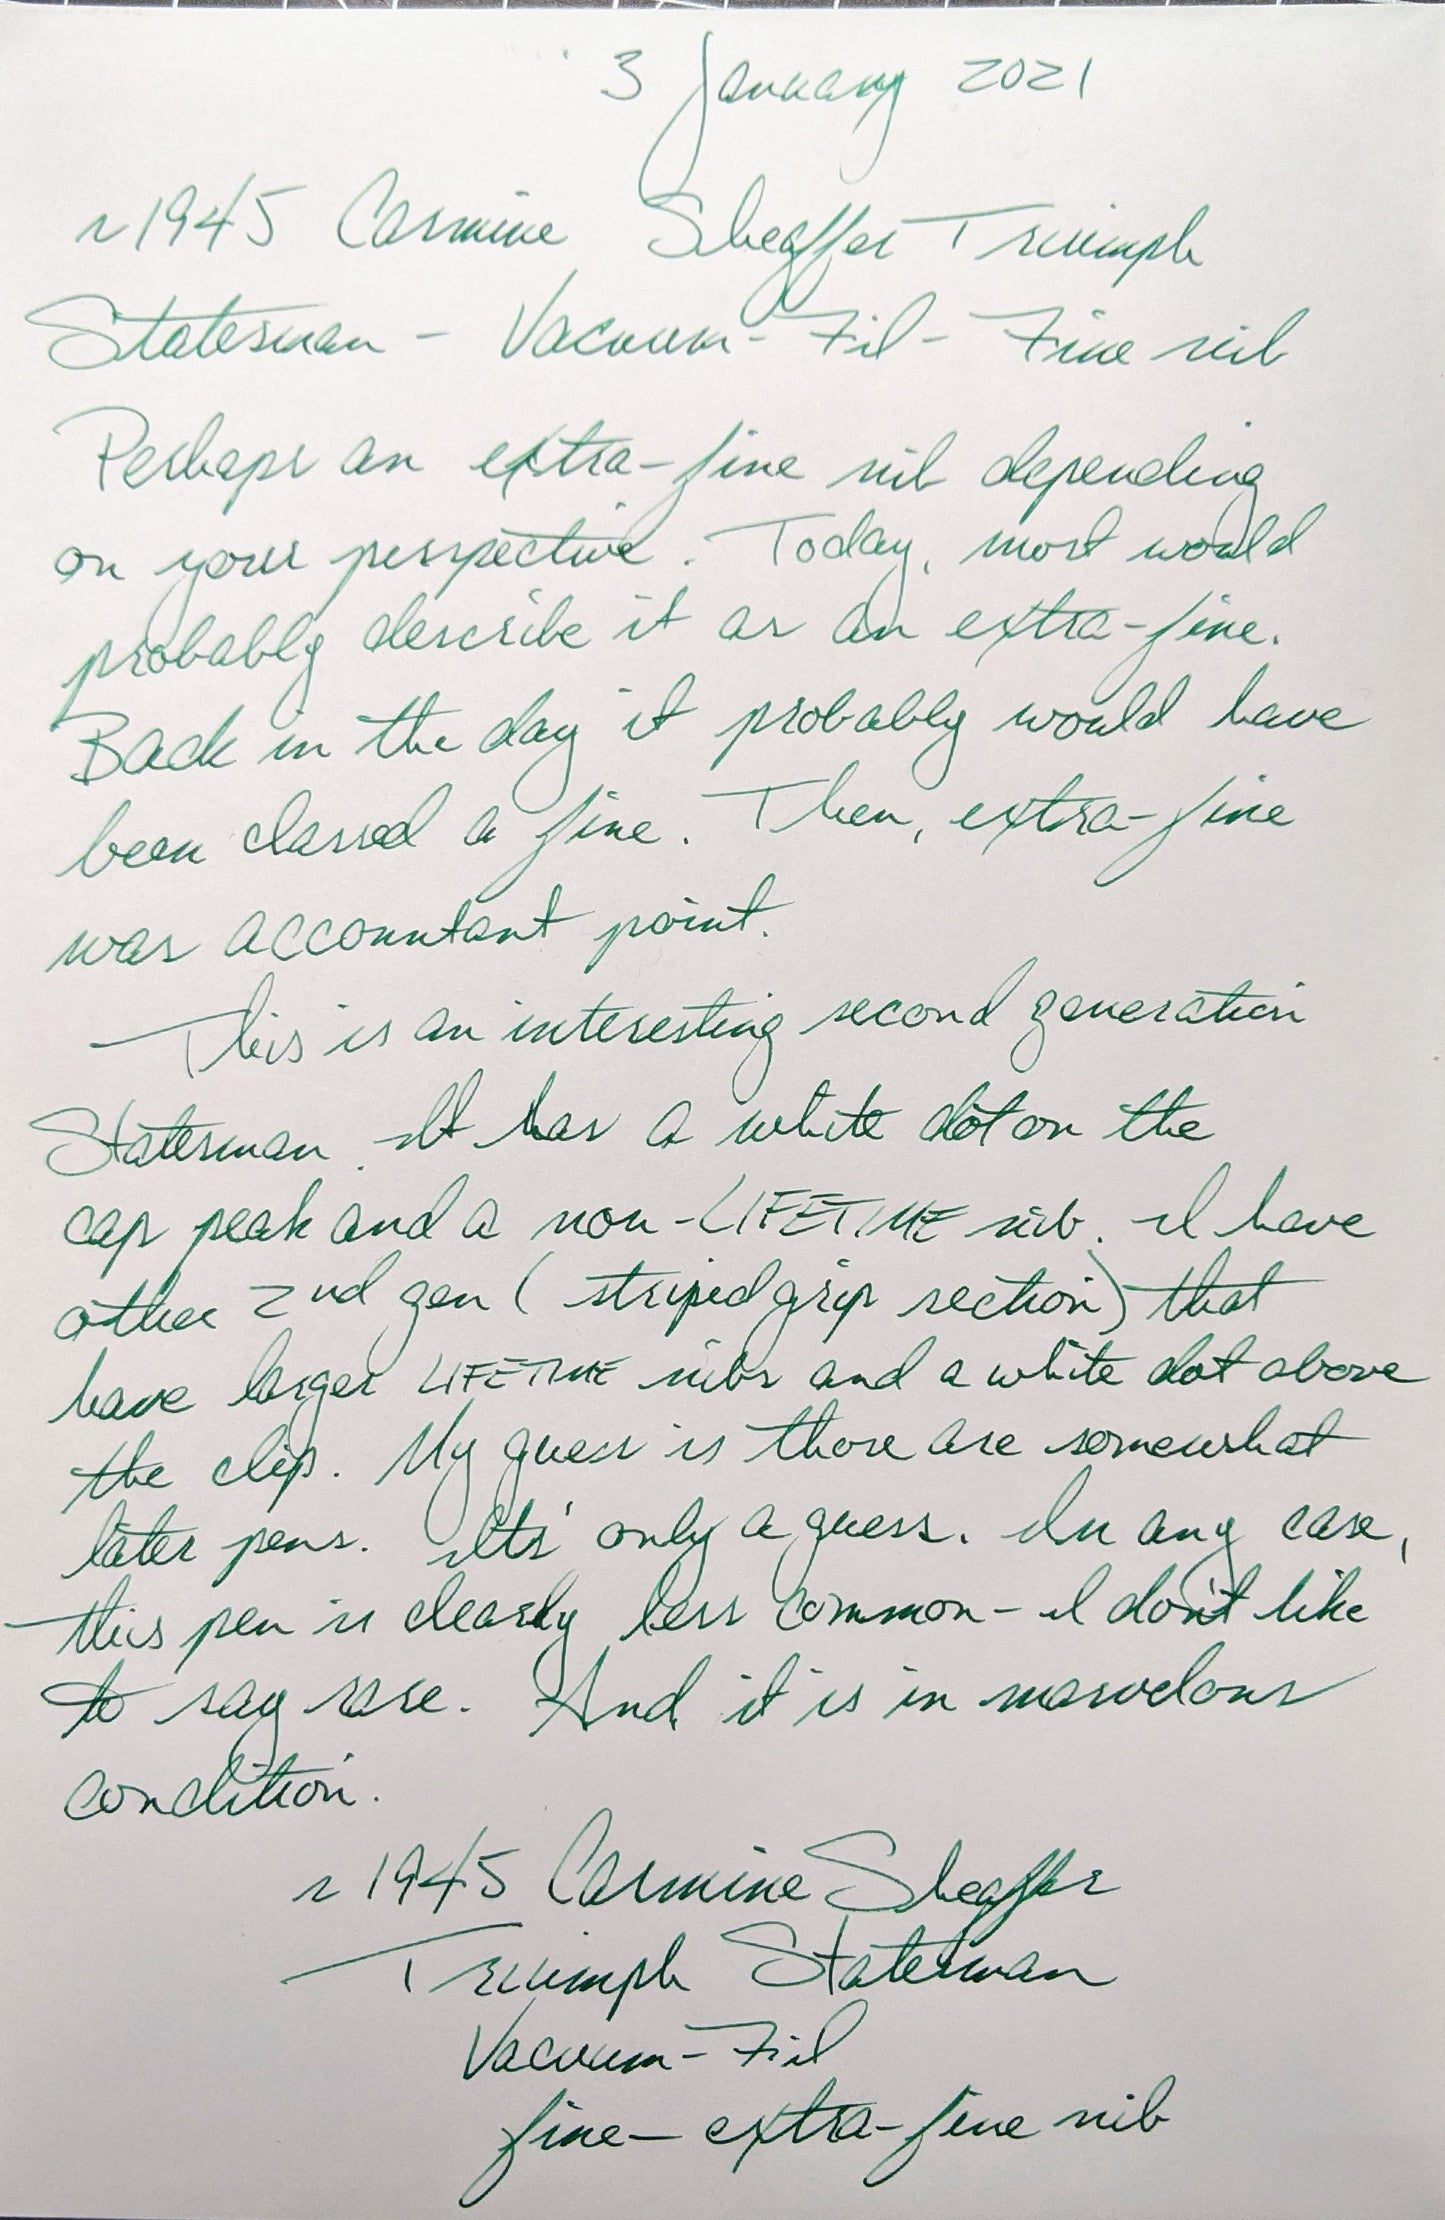 3 January 2021
~1945 Carmine Sheaffer Triumph
Statesman - Vacuum-Fil - Fine nib
Perhaps an extra-fine nib depending
on your perspective. Today, most would
probably describe it as an extra-fine.
Back in the day it probably would have
been classed a fine. Then, extra-fine
was accountant point.
This is an interesting second generation
Statesman. It has a white dot on the
cap peak and a non-LIFETIME nib. I have
other 2nd gen (striped grip section) that
have larger LIFETIME nibs and a white dot above
the clip. My guess is those are somewhat
later pens. Its' only a guess. In any case,
this pen is clearly less common - I don't like
to say rare. And it is in marvelous
condition.
~1945 Carmine Sheaffer
Triumph Statesman
Vacuum-Fil
fine - extra-fine nib